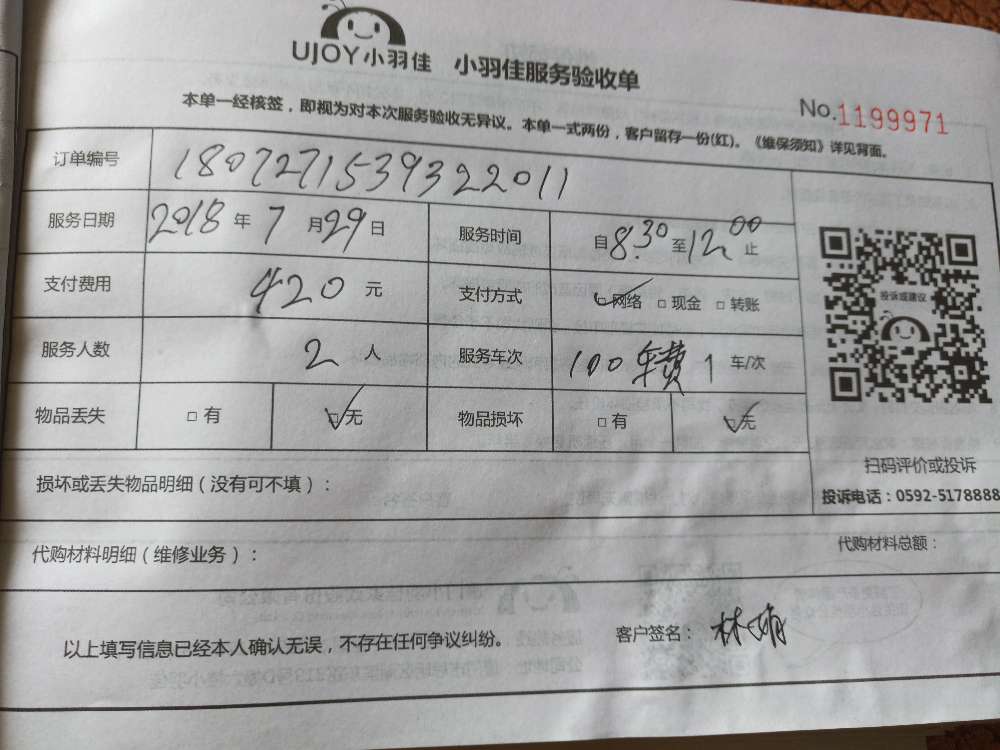 UJOY小羽佳 小羽佳服务验收单
No.1199971
本单一经核签，即视为对本次服务验收无异议。本单一式两份，客户留存一份(红)。《维保须知》详见背面。
订单编号 180727153932201​1
服务日期 2018 年 7 月 29 日 服务时间 自 8:30 至 12:00 止
支付费用 420 元 支付方式 ☑网络 □现金 □转账
投诉或建议
服务人数 2 人 服务车次 100车费 1 车/次
物品丢失 □有 ☑无 物品损坏 □有 ☑无
扫码评价或投诉
损坏或丢失物品明细（没有可不填）：
投诉电话：0592-5178888
代购材料明细（维修业务）：
代购材料总额：
以上填写信息已经本人确认无误，不存在任何争议纠纷。
客户签名： 林娟